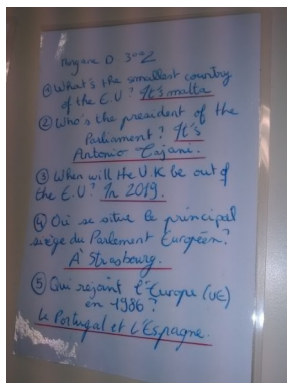 Morgane D. 3ème2
① What's the smallest country
of the E.U? It's malta
② Who's the president of the
Parliament? It's
Antonio Tajani.
③ When will the U.K be out of
the E.U? In 2019.
④ Où se situe le principal
siège du Parlement Européen?
À Strasbourg.
⑤ Qui rejoint l'Europe (UE)
en 1986?
Le Portugal et L'Espagne.